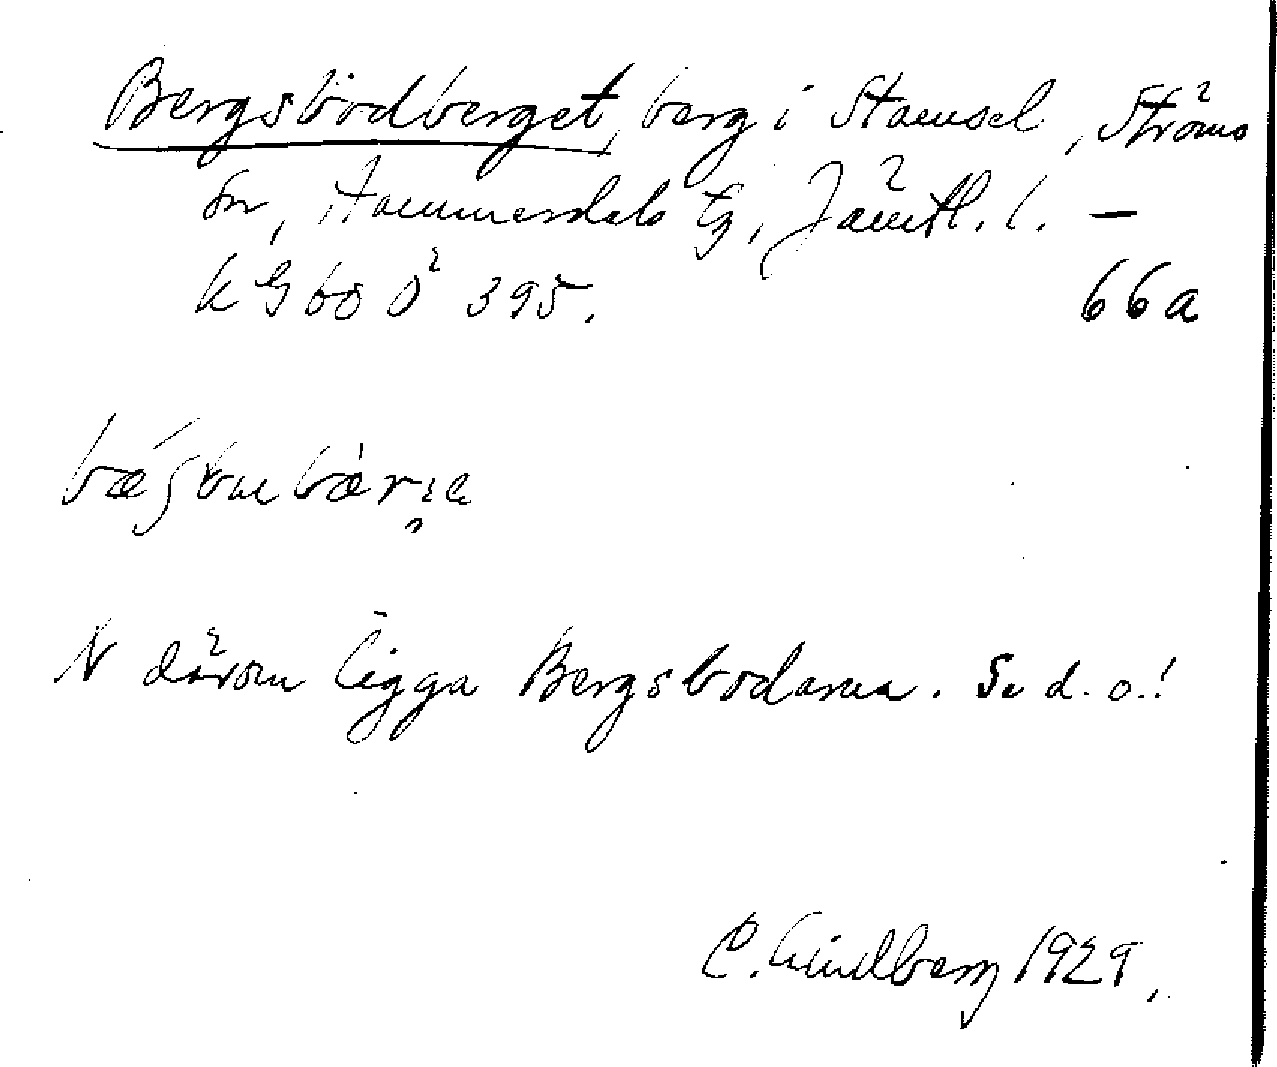 Bergsbodberget, berg i Stamsel, Ströms
sn, Hammerdals tg, Jämtl. l. —
kG 60 Ö 395. 66a
N därom ligga Bergsbodarna. Se d. o.!
C. Lindberg 1929.